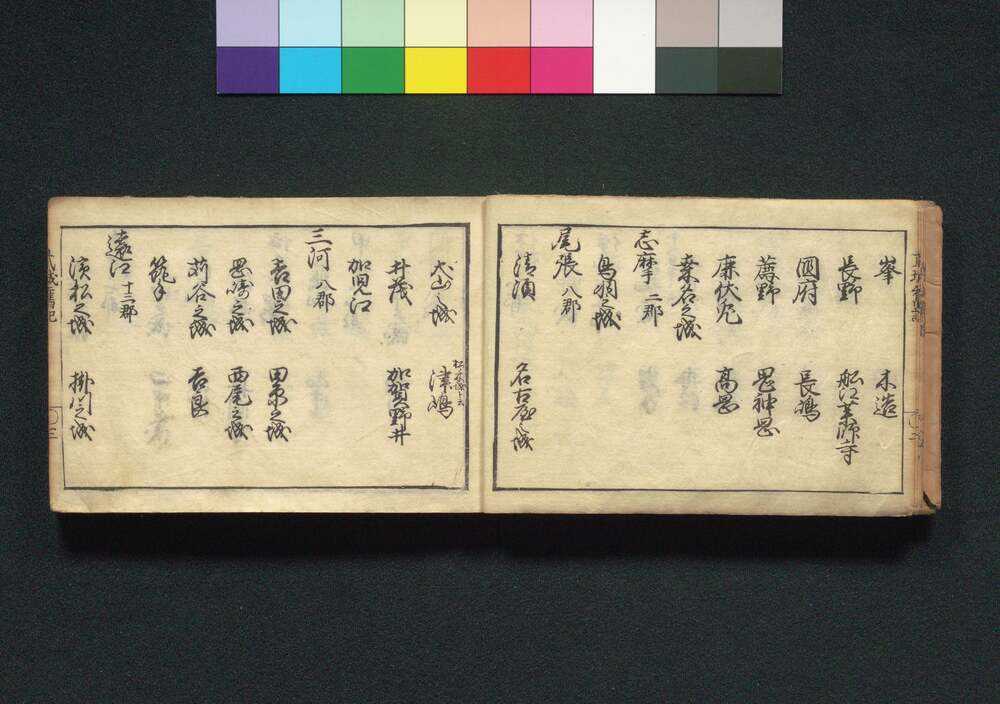 峯　木造
長野　船江薬師寺
國府　長嶋
薦野　岡神岡
廉伏兎　高岡
桑名之城
志摩 二郡
鳥羽之城
尾張 八郡
清須　名古屋之城
犬山之城　津嶋
井茂　加賀野井
加田江
三河 八郡
吉田之城　田原之城
岡崎之城　西尾之城
苅谷之城　吉良
遠江 十三郡
濱松之城　掛川之城